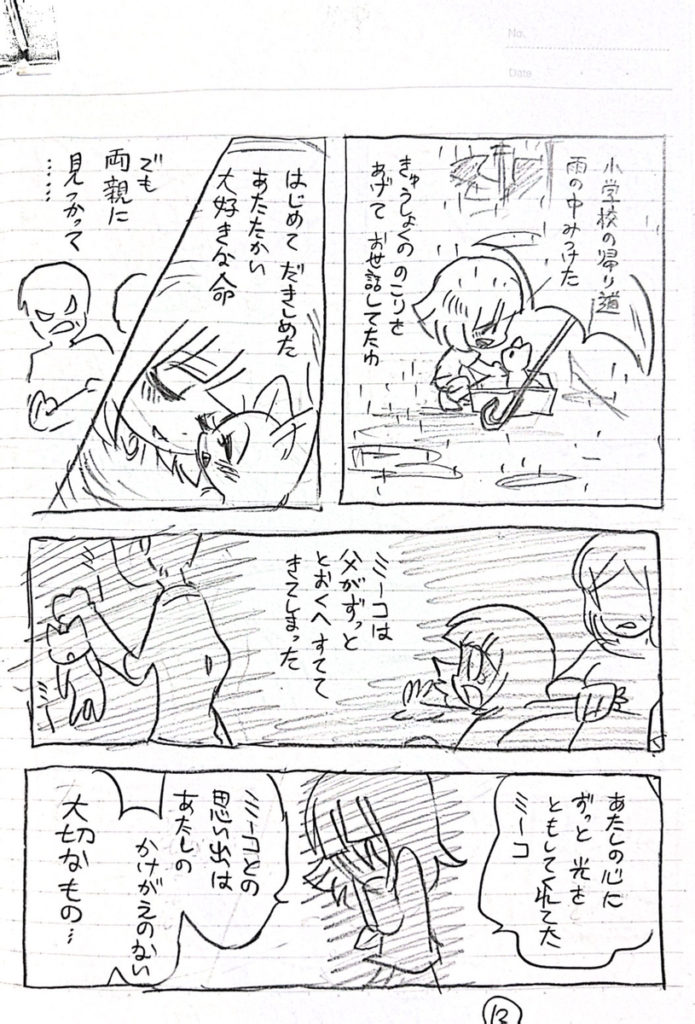 No.
Date
小学校の帰り道
雨の中みつけた
きゅうしょくの のこりを
あげて お世話してたゆ
はじめて だきしめた
あたたかい
大好きな命
でも
両親に
見つかって
……
ミーコは
父がずっと
とおくへ すてて
きてしまった
あたしの心に
ずっと 光を
ともしてくれてた
ミーコ
ミーコとの
思い出は
あたしの
かけがえのない
大切なもの…
13